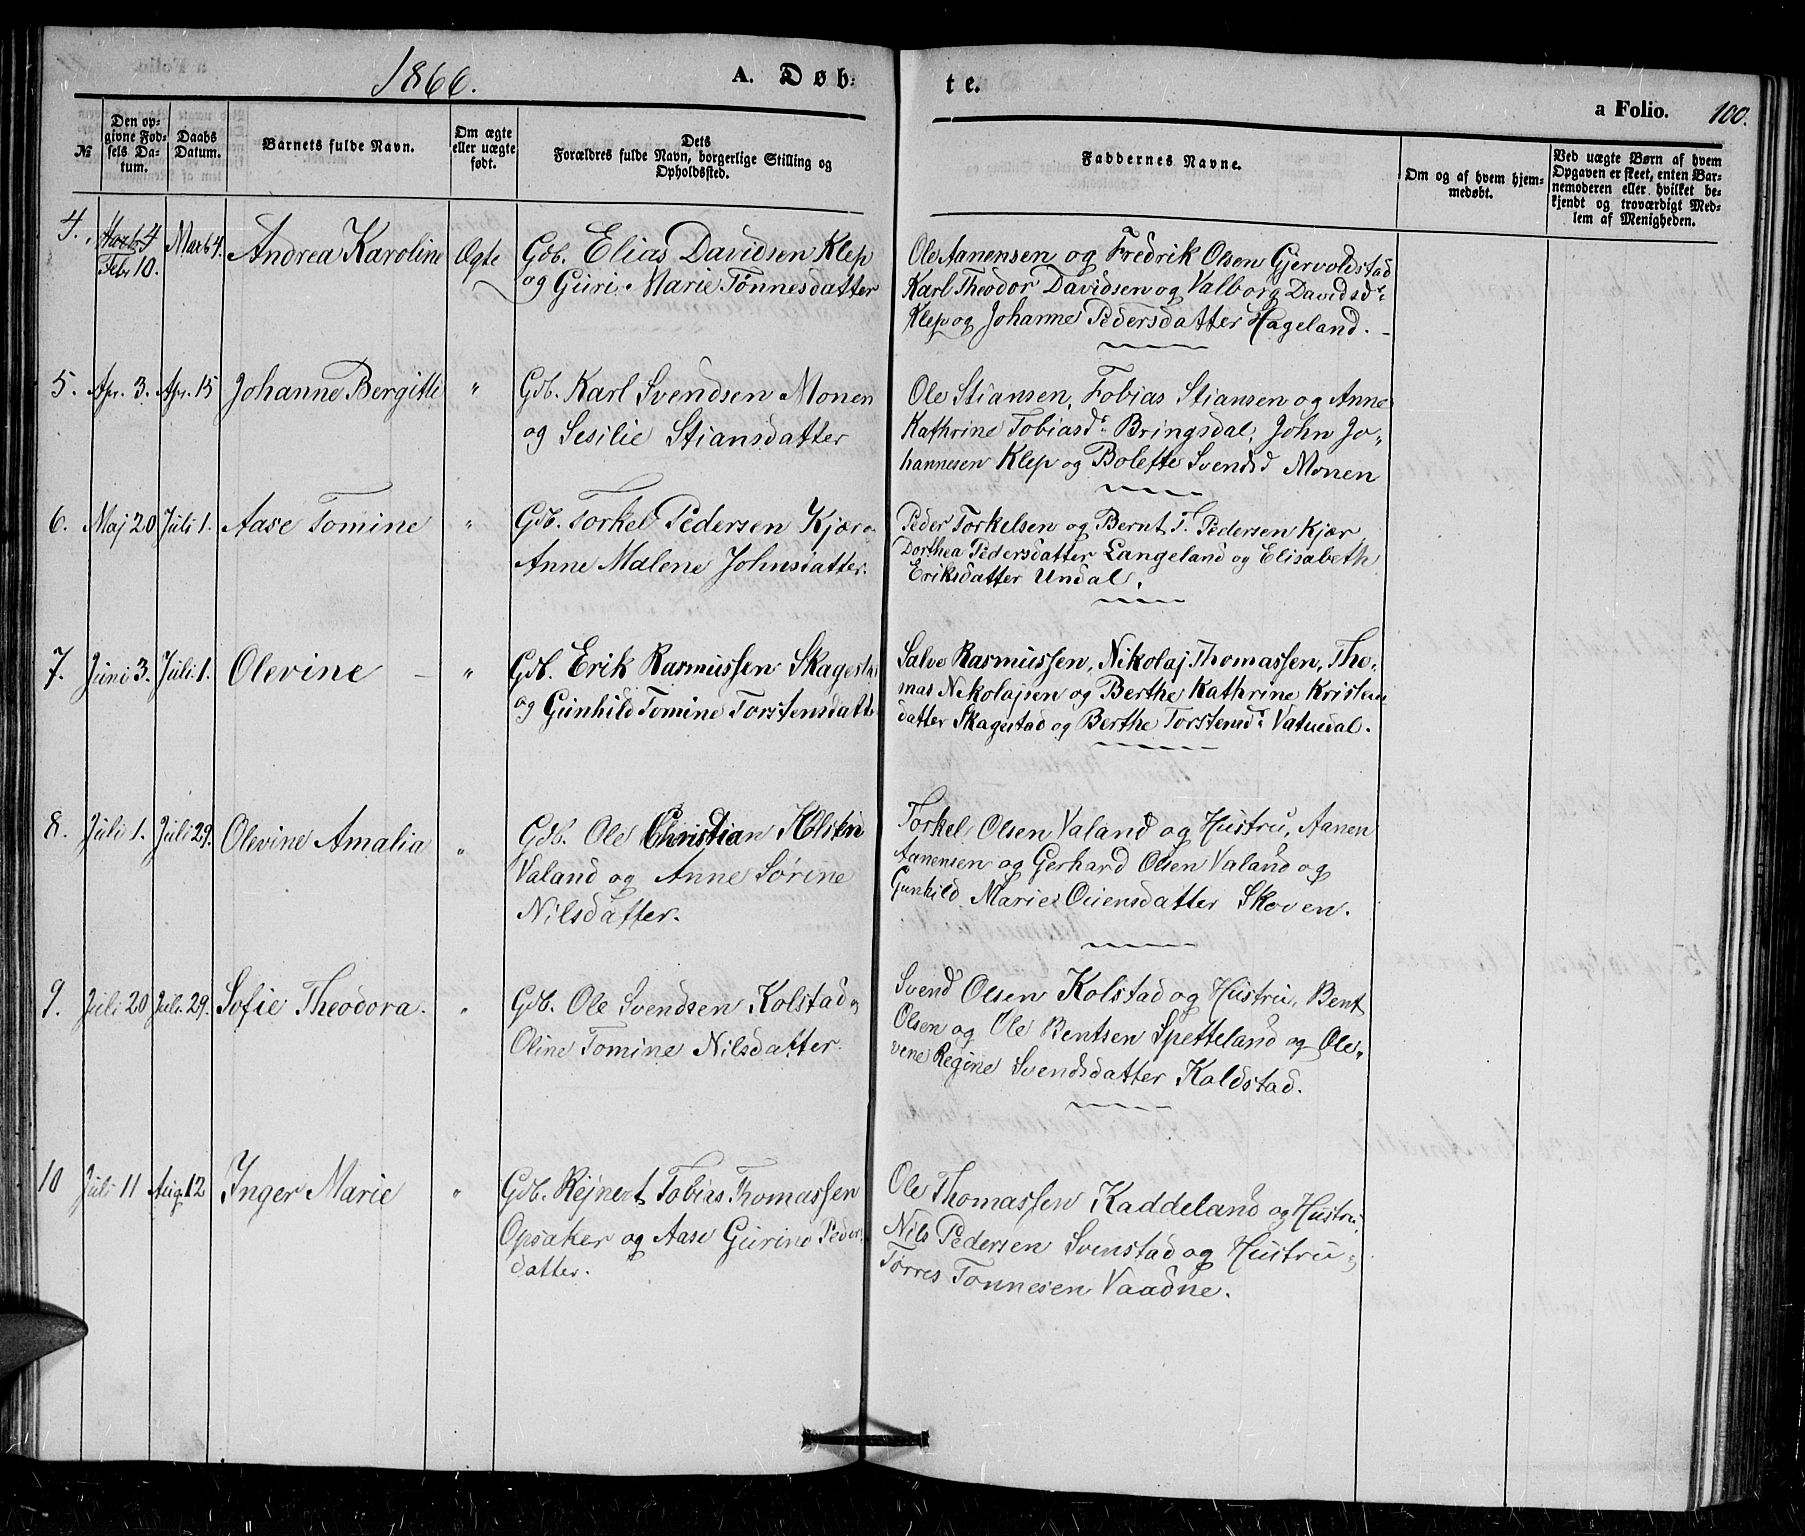 1866. A. Døb-
te.
a Folio. 100.
№
Den op-
givne Fød-
sels Da-
tum.
Daabs
Datum.
Barnets fulde Navn.
Om ægte
eller uægte
født.
Dets
Forældres fulde Navn, borgerlige Stilling og
Opholdssted.
Faddernes Navne.
Om og af hvem hjem-
medøbt.
Ved uægte Børn af hvem
Opgaven er skeet, enten Bar-
nemoderen eller hvilket be-
kjendt og troværdigt Med-
lem af Menigheden.
4. Marts 4 Febr 10. Marts 4. Andrea Karoline Ægte
Gdb. Elias Davidsen Klep
og Guri Marie Tønnesdatter
Ole Aanensen og Fredrik Olsen Gjervoldstad
Karl Theodor Davidsen og Valborg Davidsd.
Klep og Johanne Pedersdatter Hageland.
5. Apr. 3. Apr. 15 Johanne Bergitte "
Gdb. Karl Svendsen Monen
og Sesilie Stiansdatter
Ole Stiansen, Tobias Stiansen og Anne
Kathrine Tobiasd. Bringsdal, John Jo-
hannesen Klep og Bolette Svendsd Monen
6. Maj 20 Juli 1. Aase Tomine "
Gdb. Torkel Pedersen Kjær o
Anne Malene Johnsdatter.
Peder Torkelsen og Bernt T. Pedersen Kjær,
Dorthea Pedersdatter Langeland og Elisabeth
Eriksdatter Undal.
7. Juni 3. Juli 1. Olevine "
Gdb. Erik Rasmussen Skagesta
og Gunhild Tomine Torstensdatt
Salve Rasmussen, Nikolaj Thomassen, Tho-
mas Nikolajsen og Berthe Kathrine Kristens
datter Skagestad og Berthe Torstensd. Vatnedal.
8. Juli 1. Juli 29. Olevine Amalia "
Gdb. Ole Christian Holsten
Valand og Anne Sørine
Nilsdatter.
Torkel Olsen Valand og Hustru, Aanen
Aanensen og Gerhard Olsen Valand og
Gunhild Marie Oiensdatter Skoven.
9. Juli 20 Juli 29. Sofie Theodora. "
Gdb. Ole Svendsen Kolstad o
Oline Tomine Nilsdatter.
Svend Olsen Kolstad og Hustru, Bent
Olsen og Ole Bentsen Spetteland og Ole-
vene Regine Svendsdatter Koldstad.
10 Juli 11 Aug. 12 Inger Marie "
Gdb. Rejnert Tobias Thomassen
Opsaker og Aase Gurine Peders
datter.
Ole Thomassen Kaddeland og Hustru,
Nils Pedersen Svenstad og Hustru o
Torres Tonnesen Vaadne.